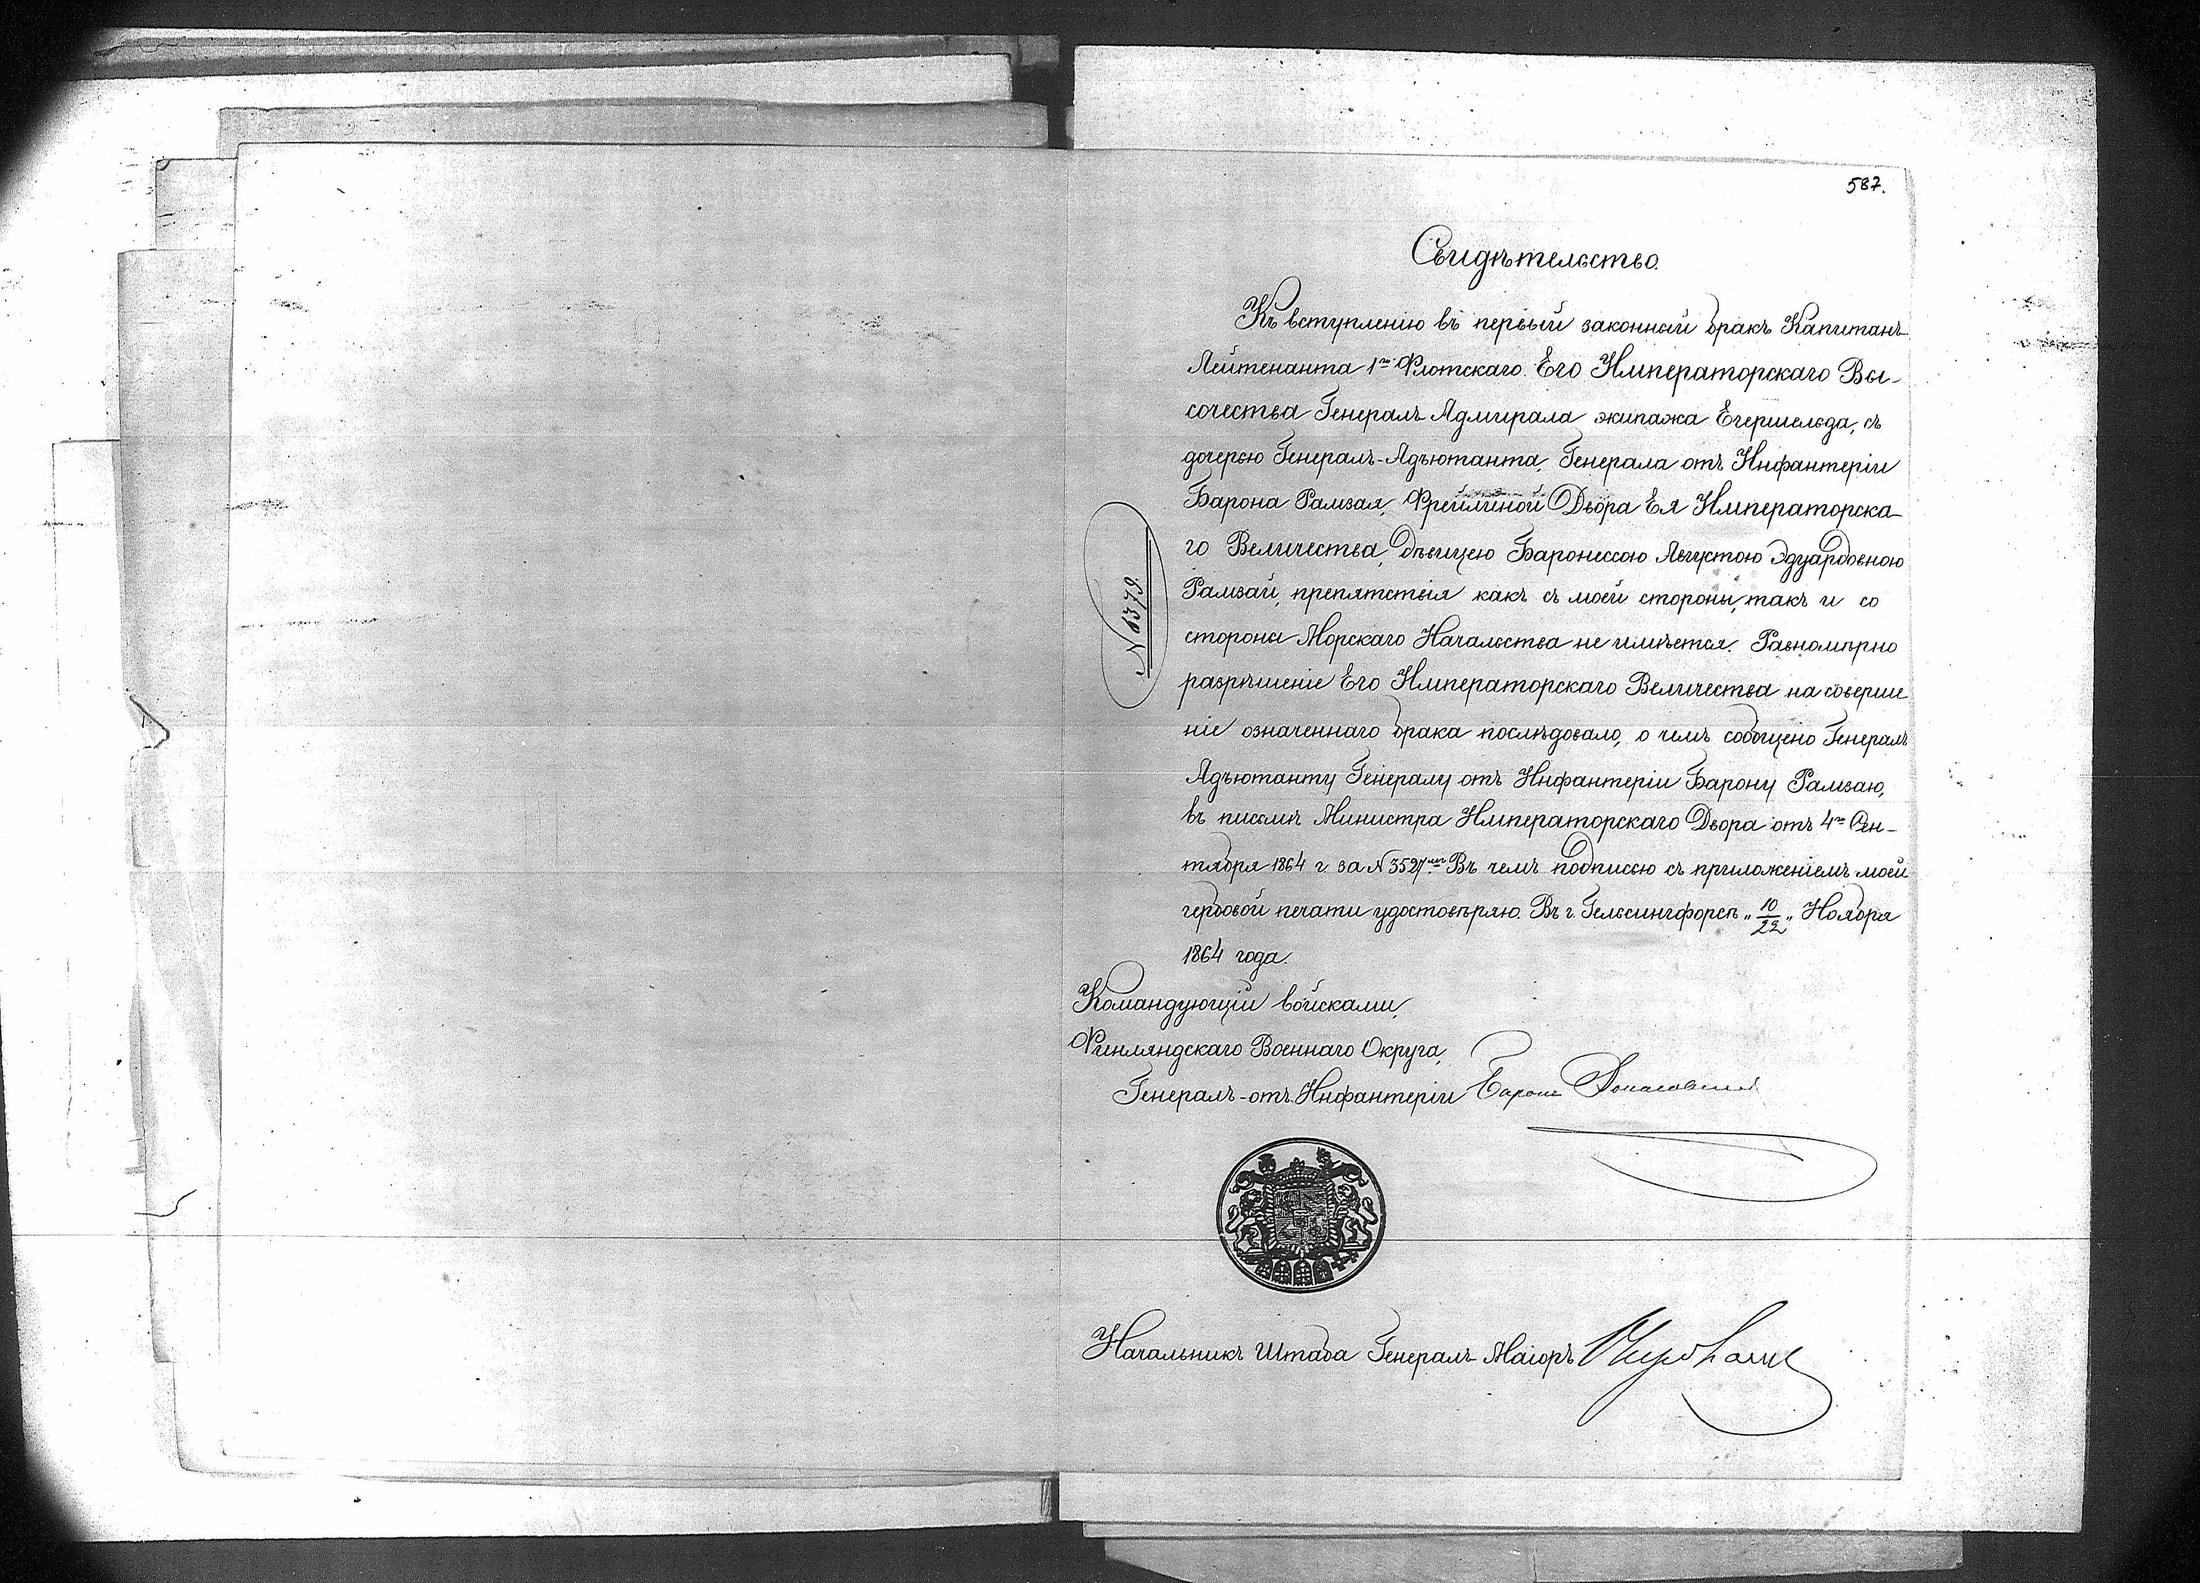 587.
Свидѣтельство.
Къ вступленію въ первый законный бракъ Капитанъ
Лейтенанта 1го Флотскаго Его Императорскаго Вы-
сочества Генералъ Адмирала экипажа Егершельда, съ
дочерью Генералъ-Адъютанта, Генерала отъ Инфантеріи
Барона Рамзая, Фрейлиной Двора Ея Императорска-
го Величества, дѣвицею Баронессою Августою Эдуардовною
Рамзай, препятствія какъ съ моей стороны, такъ и со
стороны Морскаго Начальства не имѣется. Равномѣрно
разрѣшеніе Его Императорскаго Величества на соверше
ніе означеннаго брака послѣдовало, о чемъ сообщено Генералъ
Адъютанту Генералу отъ Инфантеріи Барону Рамзаю,
въ письмѣ Министра Императорскаго Двора отъ 4го Сен-
тября 1864 г. за № 3527мъ. Въ чемъ подписью съ приложеніемъ моей
гербовой печати удостовѣряю. Въ г. Гельсингфорсѣ „10/22„ Ноября
1864 года.
№ 1379.
Командующій войсками,
Финляндскаго Военнаго Округа,
Генералъ-отъ-Инфантеріи Баронъ
Начальникъ Штаба Генералъ-Маіоръ